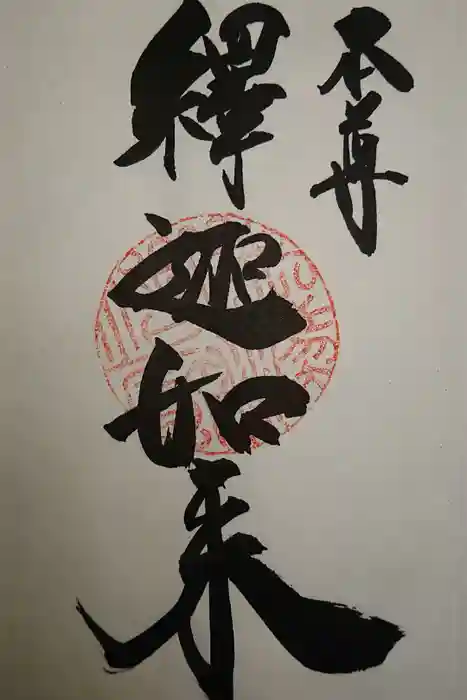 本尊
繹迦如来